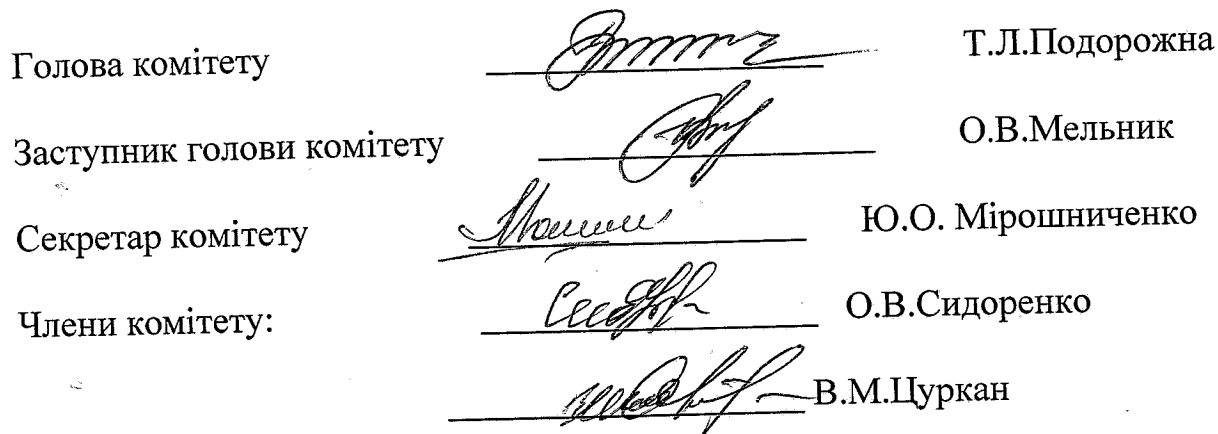 Голова комітету Т.Л.Подорожна
Заступник голови комітету О.В.Мельник
Секретар комітету Ю.О. Мірошниченко
Члени комітету: О.В.Сидоренко
В.М.Цуркан